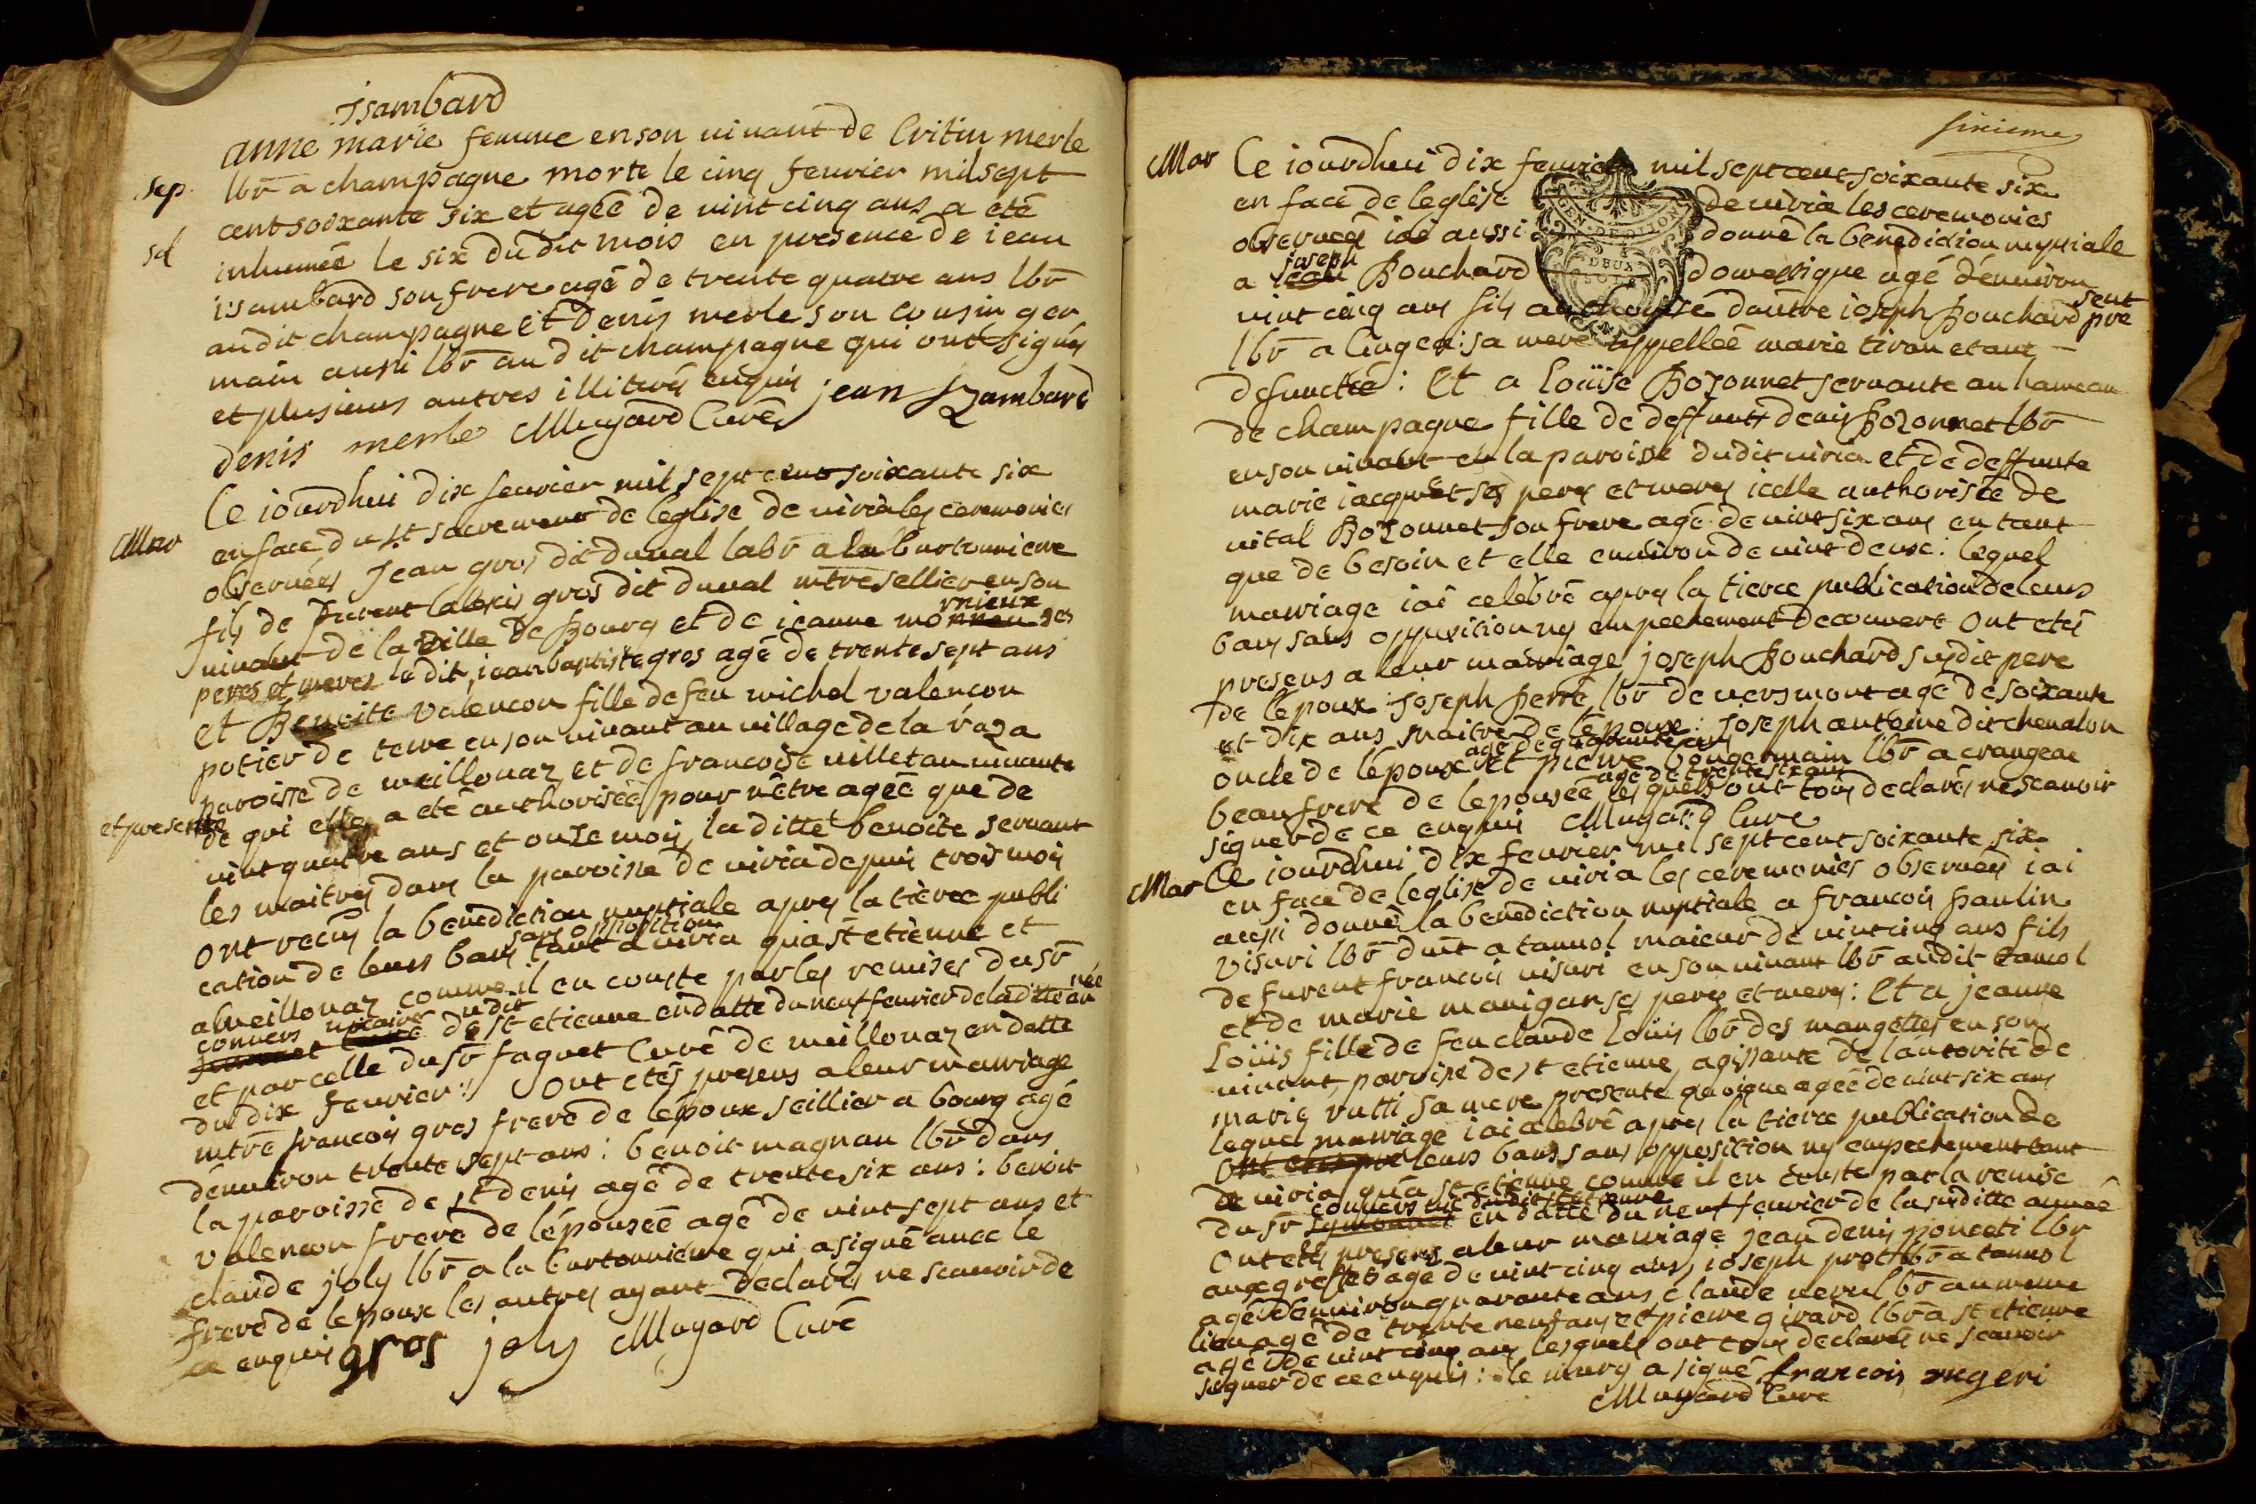 Isambard
anne marie femme en son uiuant de Critin merle
sep. lbr a champagne morte le cinq feurier mil sept
cent soixante six et agée de uint cinq ans a eté
sd inhumée le six dudit mois en presence de iean
isambard son frere agé de trente quatre ans lbr
audit champagne et Denis merle son cousin ger
main aussi lbr audit champagne qui ont signés
et plusieurs autres illiterés enquis jean Izambard
denis merle Mugard Curé
Mar Ce iourdhui dix feurier mil sept cent soixante six
en face du st sacrement de leglise de uiria les ceremonies
obseruées Jean gros dit duual labr a la burtonniere
fils de furent gros dit duual mtre sellier en son
uiuant de la uille de Bourg et de ieanne mornieux ses
peres et meres ledit iean baptiste gros agé de trente sept ans
et Benoite valencon fille de feu michel valencon
potier de terre en son uiuant au village de la raza
paroisse de meillonaz et de francoise uillet au uiuante
et presente de qui elle a eté authorisée pour nêtre agée que de
uint quatre ans et onze mois la ditte benoite seruant
les maitres dans la paroisse de uiria depuis trois mois
ont recus la benediction nuptiale apres la tierce publi
cation de leurs bans sans opposition tant a uiria qua st etienne et
a meillonaz comme il en conste par les remises du sr
conuers uicaire dudit st etienne en datte du neuf feurier de laditte année
et par celle du sr faguet Curé de meillonaz en datte
du dix feurier : ont etés presens a leur mariage
mtre francois gros frere de lépoux seillier a bourg agé
dénuiron trente sept ans : benoit magnan lbr dans
la paroisse de st denis agé de trente six ans : benoit
valencon frere de lépousée agé de uint sept ans et
claude joly lbr a la burtonniere qui a signé auec le
frere de lepoux les autres ayant declarés ne scauoir de
ce enquis gros joly Mugard Curé
sixieme
Mar Ce iourdhui dix feurier mil sept cent soixante six
en face de leglise de uiria les ceremonies
obseruées iai aussi donné la benediction nuptiale
a joseph Bouchard domestique agé dénuiron
uint cinq ans fils dautre ioseph Bouchard present
lbr a lingea : sa mere appellée marie tiron etant
defunctte : Et a loüise Bozonnet seruante au hameau
de champagne fille de deffunt denis Bozonnet lbr
en son uiuant en la paroisse dudit uiria et de deffunte
marie iacquet ses peres et meres icelle authorisée de
uital Bozonnet son frere agé de uint six ans en tant
que de besoin et elle enuiron de uint deux : lequel
marriage iai celebré apres la tierce publication de leurs
bans sans opposition ny empechement decouuert ont etés
presens a leur marriage joseph Bouchard susdit pere
de lépoux : Joseph perré lbr de uersmont agé de soixante
et dix ans maitre de lépoux : Joseph antoine dit cheualon
oncle de lépoux agé de quarante ans et pierre bongermain lbr a crangeac
beaufrere de lepousée agé de trente six ans lesquels ont tous declarés ne scauoir
signer de ce enquis Mugard Cure
Mar Ce iourdhui dix feurier mil sept cent soixante six
en face de leglise de uiria les ceremonies obseruées iai
aussi donné la benediction nuptiale a francois paulin
visuri lbr a tannol maieur de uint cinq ans fils
de furent francois uisuri en son uiuant lbr audit tannol
et de marie manigan ses peres et meres : Et a jeanne
Loüis fille de feu claude Loüis lbr des mangettes en son
uiuant paroisse de st etienne agissante de lautorité de
marie rutti sa mere presente quoique agée de uint six ans
lequel marriage iai celebré apres la tierce publication de
leurs bans sans opposition ny empechement tant
a uiria qua st etienne comme il en conste par la remise
du sr conuers uic dudit st etienne en datte du neuf feurier de la susditte année
ont etés presens a leur marriage jean denis ponceti lbr
aux greffets agé de uint cinq ans, ioseph prost lbr a tannol
agé dénuiron quarante ans claude neuul lbr au meme
lieu agé de trente neuf ans et pierre girard lbr a st etienne
agé de uint cinq ans lesquels ont tous declarés ne scauoir
signer de ce enquis : le marry a signé francois
Mugard Cure
GEN. DE DIJON
DEUX